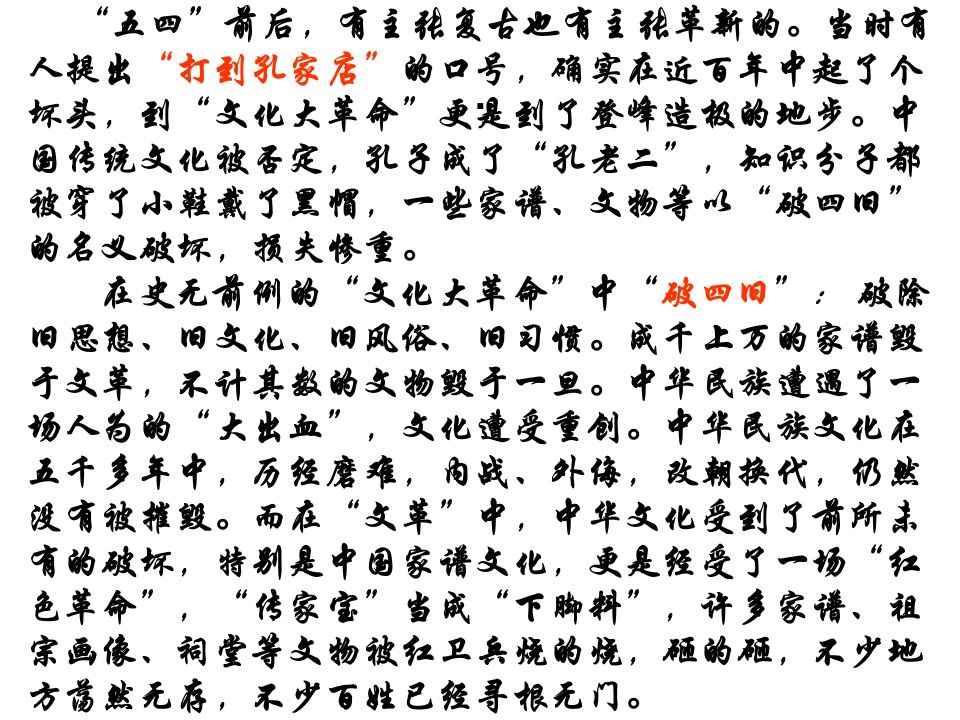 “五四”前后，有主张复古也有主张革新的。当时有
人提出“打到孔家店”的口号，确实在近百年中起了个
坏头，到“文化大革命”更是到了登峰造极的地步。中
国传统文化被否定，孔子成了“孔老二”，知识分子都
被穿了小鞋戴了黑帽，一些家谱、文物等以“破四旧”
的名义破坏，损失惨重。
在史无前例的“文化大革命”中“破四旧”：破除
旧思想、旧文化、旧风俗、旧习惯。成千上万的家谱毁
于文革，不计其数的文物毁于一旦。中华民族遭遇了一
场人为的“大出血”，文化遭受重创。中华民族文化在
五千多年中，历经磨难，内战、外侮，改朝换代，仍然
没有被摧毁。而在“文革”中，中华文化受到了前所未
有的破坏，特别是中国家谱文化，更是经受了一场“红
色革命”，“传家宝”当成“下脚料”，许多家谱、祖
宗画像、祠堂等文物被红卫兵烧的烧，砸的砸，不少地
方荡然无存，不少百姓已经寻根无门。